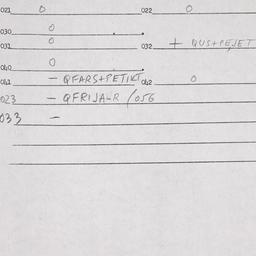 021 0 022 0
030 0
031 0 032 + QUS+PEJET
040 0
041 - QFARS+PETIKT 042 0
023 - QFRIJA-R /056
033 -